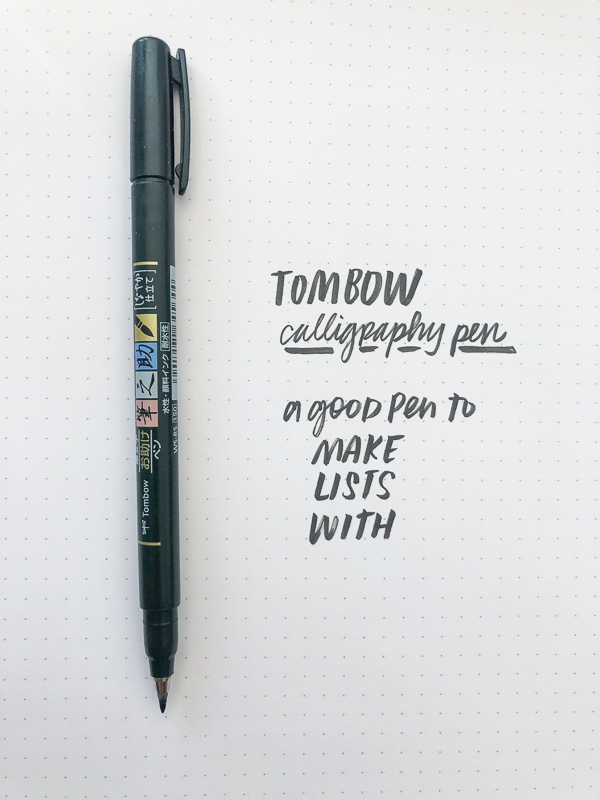 Tombow
お助け
ペン
筆之助
しなやか
仕立て
水性・顔料インク 耐水性
WS-BS 150
TOMBOW
calligraphy pen
a good pen to
MAKE
LISTS
WITH